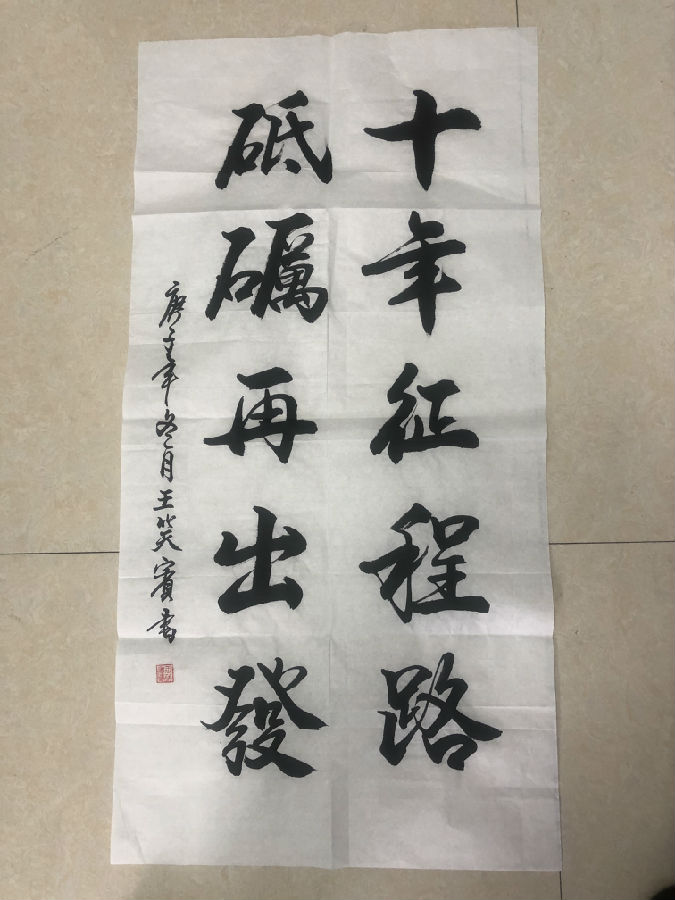 十年征程路
砥礪再出發
庚子年冬月王笑賓書